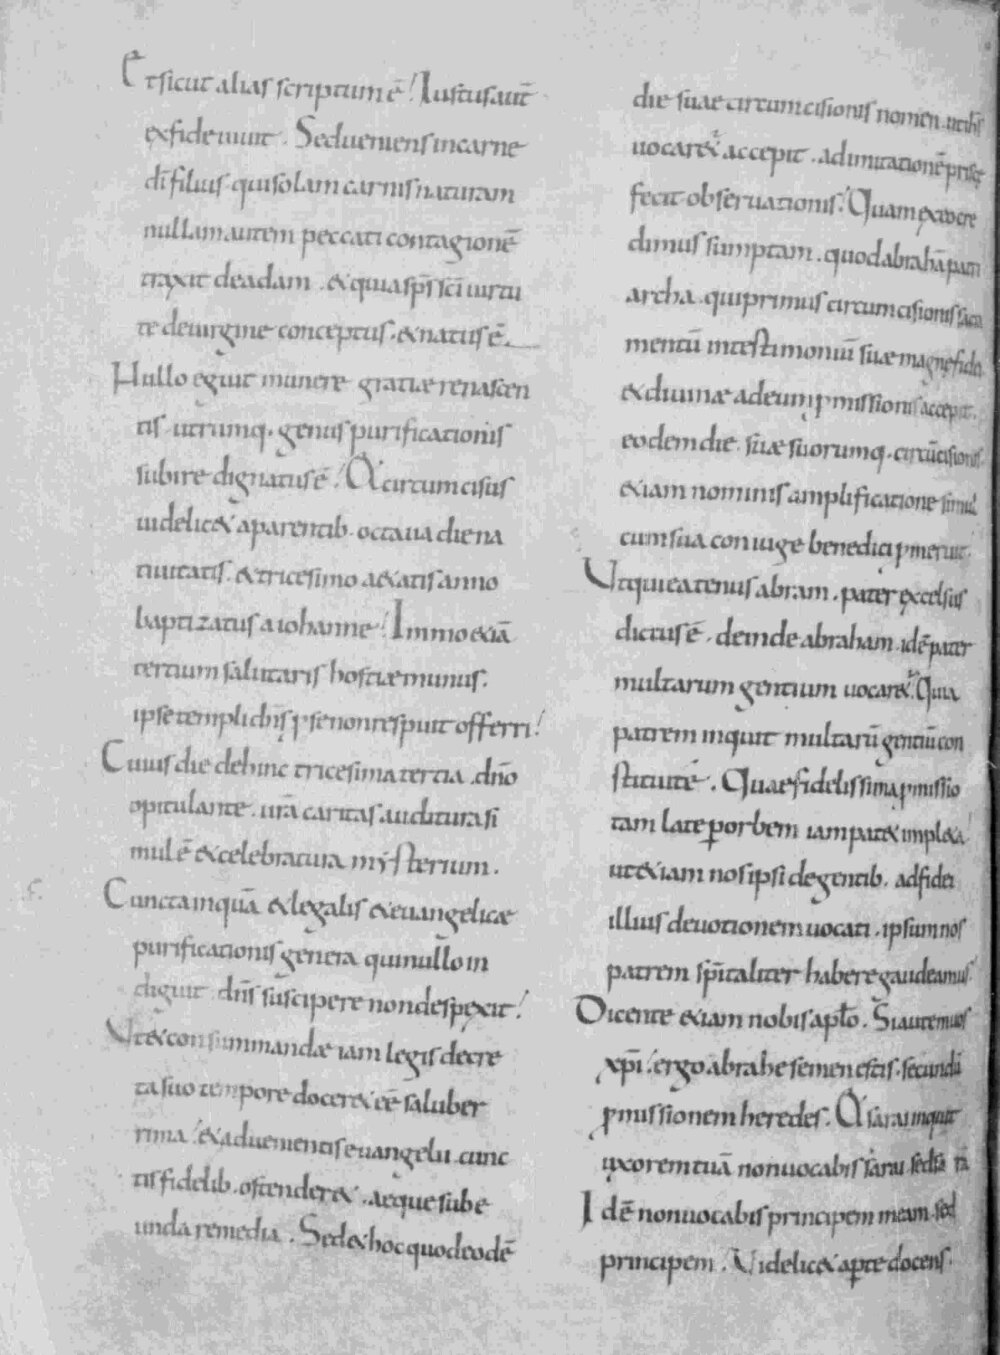 Et sicut alias scriptum ē. Iustus aut̄
ex fide uiuit. Sed ueniens in carne
dī filius. qui solam carnis naturam
nullam autem peccati contagionē
traxit de adam. & quia sp̄s sc̄i uirtu
te de uirgine conceptus. & natus ē.
Nullo eguit munere gratiae renascen
tis utrumq. genus purificationis
subire dignatus ē. & circumcisus
uidelic& a parentib. octaua die na
tiuitatis. & tricesimo a&atis anno
baptizatus a iohanne. Immo &iā
tertium salutaris hostiae munus.
ipse templi dn̄s p se non respuit offerri.
Cuius die dehinc tricesima tertia. dn̄o
opitulante. ur̄a caritas auditura si
mul ē & celebratura mysterium.
Cuncta inquā & legalis & euangelicae
purificationis genera qui nullo in
diguit. dn̄s suscipere non despexit.
Vt & consummandae iam legis decre
ta suo tempore docer& eē saluber
rima. & aduenientis euangelii. cunc
tis fidelib. ostender&. aeque sube
unda remedia. Sed & hoc quod eodē
die suae circumcisionis nomen. ut ih̄s
uocar&ur accepit. ad imitationē priscę
fecit obseruationis. Quam ex eo cre
dimus sumptam. quod abrahā patri
archa. qui primus circumcisionis sacra
mentū in testimoniū suae magnę fidei
& diuinae ad eum pmissionis accepit.
eodem die. suae suorumq. circūcisionis.
&iam nominis amplificatione simul
cum sua coniuge benedici pmeruit.
Vt qui eatenus abram. pater excelsus
dictus ē. deinde abraham. idē pater
multarum gentium uocar&ur. Quia
patrem inquit multarū gentiū con
stitui te. Quae fidelissima pmissio
tam late p orbem iam pat& impl&a.
ut &iam nos ipsi de gentib. ad fidei
illius deuotionem uocati. ipsum nos
patrem sp̄italiter habere gaudeamus.
Dicente &iam nobis aptōo. Si autem uos
xp̄i. ergo abrahe semen estis. secundū
pmissionem heredes. & sarai inquit
uxorem tuā non uocabis sarai sed sarā
Idē non uocabis principem meam. sed
principem. Videlic& apte docens.